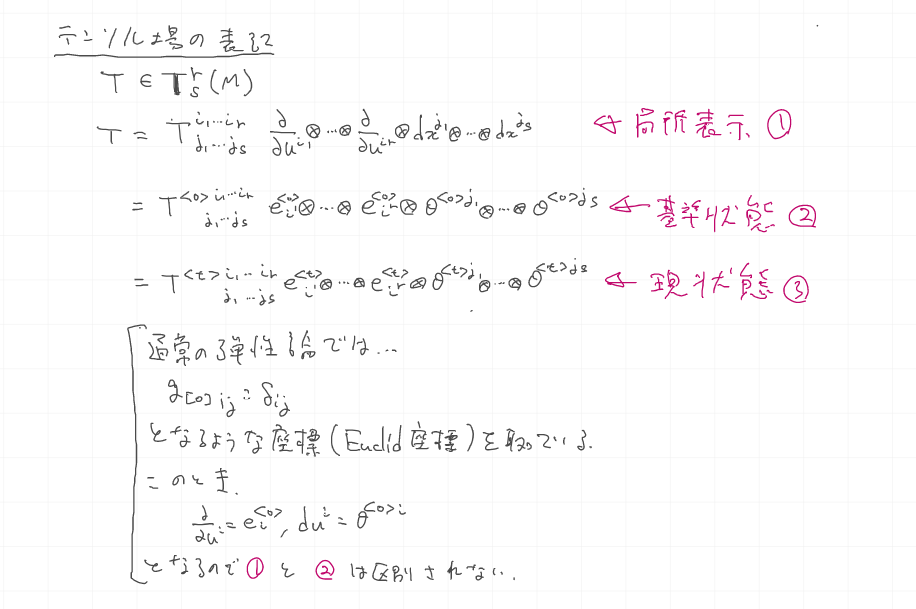 テンソル場の表記
T ∈ T^r_s(M)
T = T^{i_1…i_r}_{j_1…j_s} ∂/∂u^{i_1} ⊗…⊗ ∂/∂u^{i_r} ⊗ dx^{j_1} ⊗…⊗ dx^{j_s} ← 局所表示 ①
= T^{<0> i_1…i_r}_{j_1…j_s} e^{<0>}_{i_1} ⊗…⊗ e^{<0>}_{i_r} ⊗ θ^{<0>j_1} ⊗…⊗ θ^{<0>j_s} ← 基準状態 ②
= T^{<t> i_1…i_r}_{j_1…j_s} e^{<t>}_{i_1} ⊗…⊗ e^{<t>}_{i_r} ⊗ θ^{<t>j_1} ⊗…⊗ θ^{<t>j_s} ← 現状態 ③
通常の弾性論では…
g_{[0]ij} = δ_{ij}
となるような座標(Euclid座標)を取っている.
このとき.
∂/∂u^i = e^{<0>}_i, du^i = θ^{<0>i}
となるので ① と ② は区別されない.